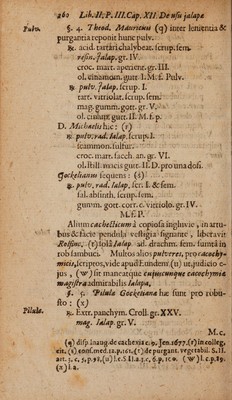 260 Lib. II. P. III. Cap. XII. De usu jalapæ
Pulv. §. 4. Theod. Mauricius (q) inter lenientia &
purgantia reponit hunc pulv.
℞. acid. tartari. chalybeat. scrup. sem.
resin. Jalap. gr. IV.
croc. mart. aperient. gr. III.
ol. cinamom. gutt. I. M. f. Pulv.
℞. pulv. Jalap. scrup. I.
tart. vitriolat. scrup. sem.
mag. gumm. gott. gr. V.
ol. cinam. gutt. II. M. f. p.
D. Michaelis hic: (r)
℞. pulv. rad. Jalap. scrup. I.
scammon. sulfur.
croc. mart. sacch. an. gr. VI.
ol. still. macis gutt. II. D. pro una dosi.
Gockelianum sequens: (s)
℞. pulv. rad. Jalap. scr. I. & sem.
sal. absinth. scrup. sem.
gumm. gott. corr. c. vitriolo. gr. IV.
M. f. P.
Alium cachecticum à copiosa ingluvie, in artu-
bus & facie pendula vestigia signante, liberavit
Rosinus, (t) solâ Jalap. ad. drachm. sem. sumtâ in
rob sambuci. Multos alios pulveres, pro cacochy-
micis, lectipros, vide apud Ettmuleru (u) ut judicio e-
jus, (w) sit mancatque cujuscunque cacochymiæ
magistra admirabilis Jalapa.
Pilulæ. §. 5. Pilulæ Gockelianæ hæ sunt pro robu-
sto: (x)
℞. Extr. panchym. Croll. gr. XXV.
mag. Jalap. gr. V.
M. c.